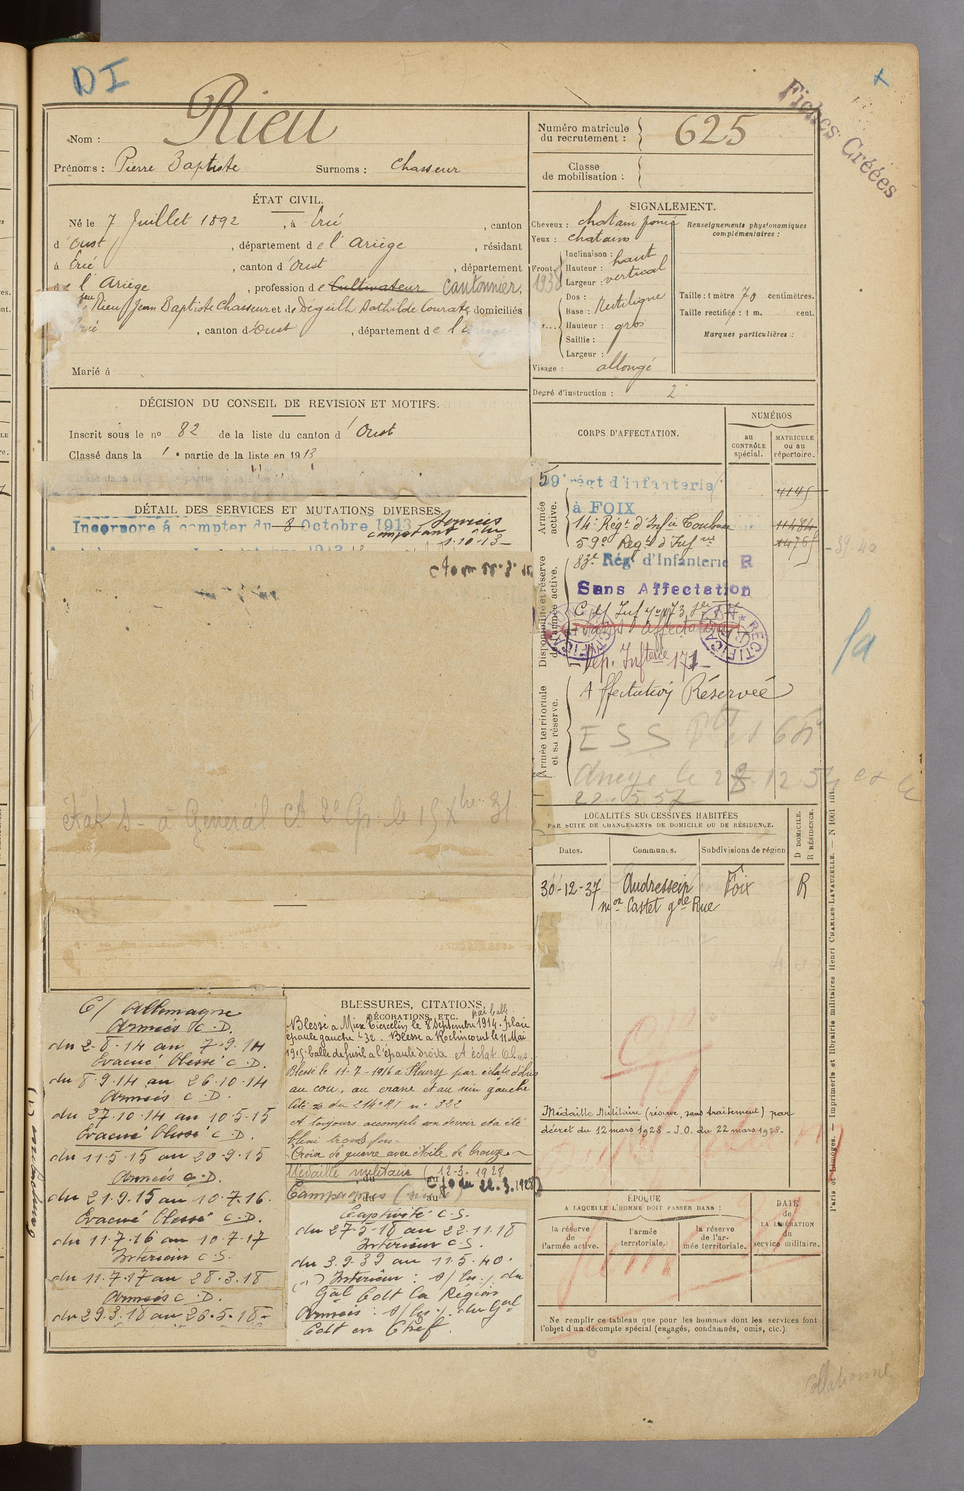 DI
Fiches Créées
Nom : Rieu
Prénoms : Pierre Baptiste Surnoms : Chasseur
Numéro matricule du recrutement : 625
Classe de mobilisation :
ÉTAT CIVIL.
Né le 7 Juillet 1892, à Ercé, canton
d'Oust, département de l'Ariège, résidant
à Ercé, canton d'Oust, département
de l'Ariège, profession de Cultivateur Cantonnier.
feu Rieu Jean Baptiste Chasseur et de Dégeilh domiciliés
Ercé, canton d'Oust, département de l'Ariège
Marié à
SIGNALEMENT.
Cheveux : chatain foncé
Yeux : chatains
Inclinaison :
Front. Hauteur : haut
Largeur : vertical
1938
Dos :
Base : Rectiligne
Hauteur : gros
Saillie :
Largeur :
Visage : allongé
Renseignements physionomiques complémentaires :
Taille : 1 mètre 70 centimètres.
Taille rectifiée : 1 m. cent.
Marques particulières :
Degré d'instruction : 2
DÉCISION DU CONSEIL DE REVISION ET MOTIFS.
Inscrit sous le no 82 de la liste du canton d'Oust
Classé dans la 1e partie de la liste en 1913
DÉTAIL DES SERVICES ET MUTATIONS DIVERSES.
Incorporé à compter du 8 Octobre 1913 Services
comptant du
1-10-13
Etat 4 - à Général Ct 2e Gpe le 15 Xbre 31
CORPS D'AFFECTATION.
NUMÉROS
au CONTRÔLE spécial.
MATRICULE ou au répertoire.
Armée active.
59e régt d'infanterie
à FOIX
14e Régt d'Inf à Toulouse
59e Régt d'Infrie
Disponibilité et réserve de l'armée active.
83e Régt d'Infanterie R
Sans Affectation
Sans affectation
RECTIFICATION
Dép. Infterie 171
Armée territoriale et sa réserve.
Affectation Réservée
ESS
22.5.57
39-40
LOCALITÉS SUCCESSIVES HABITÉES
PAR SUITE DE CHANGEMENTS DE DOMICILE OU DE RÉSIDENCE.
Dates. Communes. Subdivisions de région D DOMICILE. R RÉSIDENCE.
30-12-37 Audressein Foix R
mon Castet gde Rue
C/ Allemagne
Armées C.D.
du 2-8-14 au 7-9-14
Evacué blessé C.D.
du 8.9.14 au 26.10.14
Armées C.D.
du 27-10-14 au 10-5-15
Evacué blessé C.D.
du 11-5-15 au 20-9-15
Armées C.D.
du 21.9.15 au 10-7-16.
Evacué blessé C.D.
du 11-7-16 au 10-7-17
Intérieur C.S.
du 11-7-17 au 28-3-18
Armées C.D.
du 29.3.18 au 26-5-18
BLESSURES, CITATIONS,
DÉCORATIONS, ETC.
Blessé à le 8 Septembre 1914. plaie par balle
épaule gauche. Blessé à Roclincourt le 11 Mai
1915 balle de fusil à l'épaule droite et éclat obus.
Blessé le 11-7-1916 à Fleury par éclats d'obus
au cou, au crane et au sein gauche
Cité % du 214e RI no 322
A toujours accompli son devoir et a été
blessé trois fois
Croix de guerre avec étoile de bronze
Médaille militaire (12-3-1928
J.O du 22-3-1928)
Campagnes (suite)
Captivité C.S.
du 27-5-18 au 22-11-18
Intérieur C.S.
du 3.9.39 au 11.5.40
Intérieur : du
Gal Cdt la Région
Armées : du Gal
Cdt en Chef.
Médaille Militaire (réserve, sans traitement) par
décret du 12 mars 1928 - J.O. du 22 mars 1928.
ÉPOQUE
A LAQUELLE L'HOMME DOIT PASSER DANS :
la réserve de l'armée active. l'armée territoriale. la réserve de l'armée territoriale.
DATE de LA LIBÉRATION du service militaire.
Ne remplir ce tableau que pour les hommes dont les services font
l'objet d'un décompte spécial (engagés, condamnés, omis, etc.).
Paris et Limoges. — Imprimerie et librairie militaires Henri CHARLES-LAVAUZELLE. — N 1001 int.
Collationné